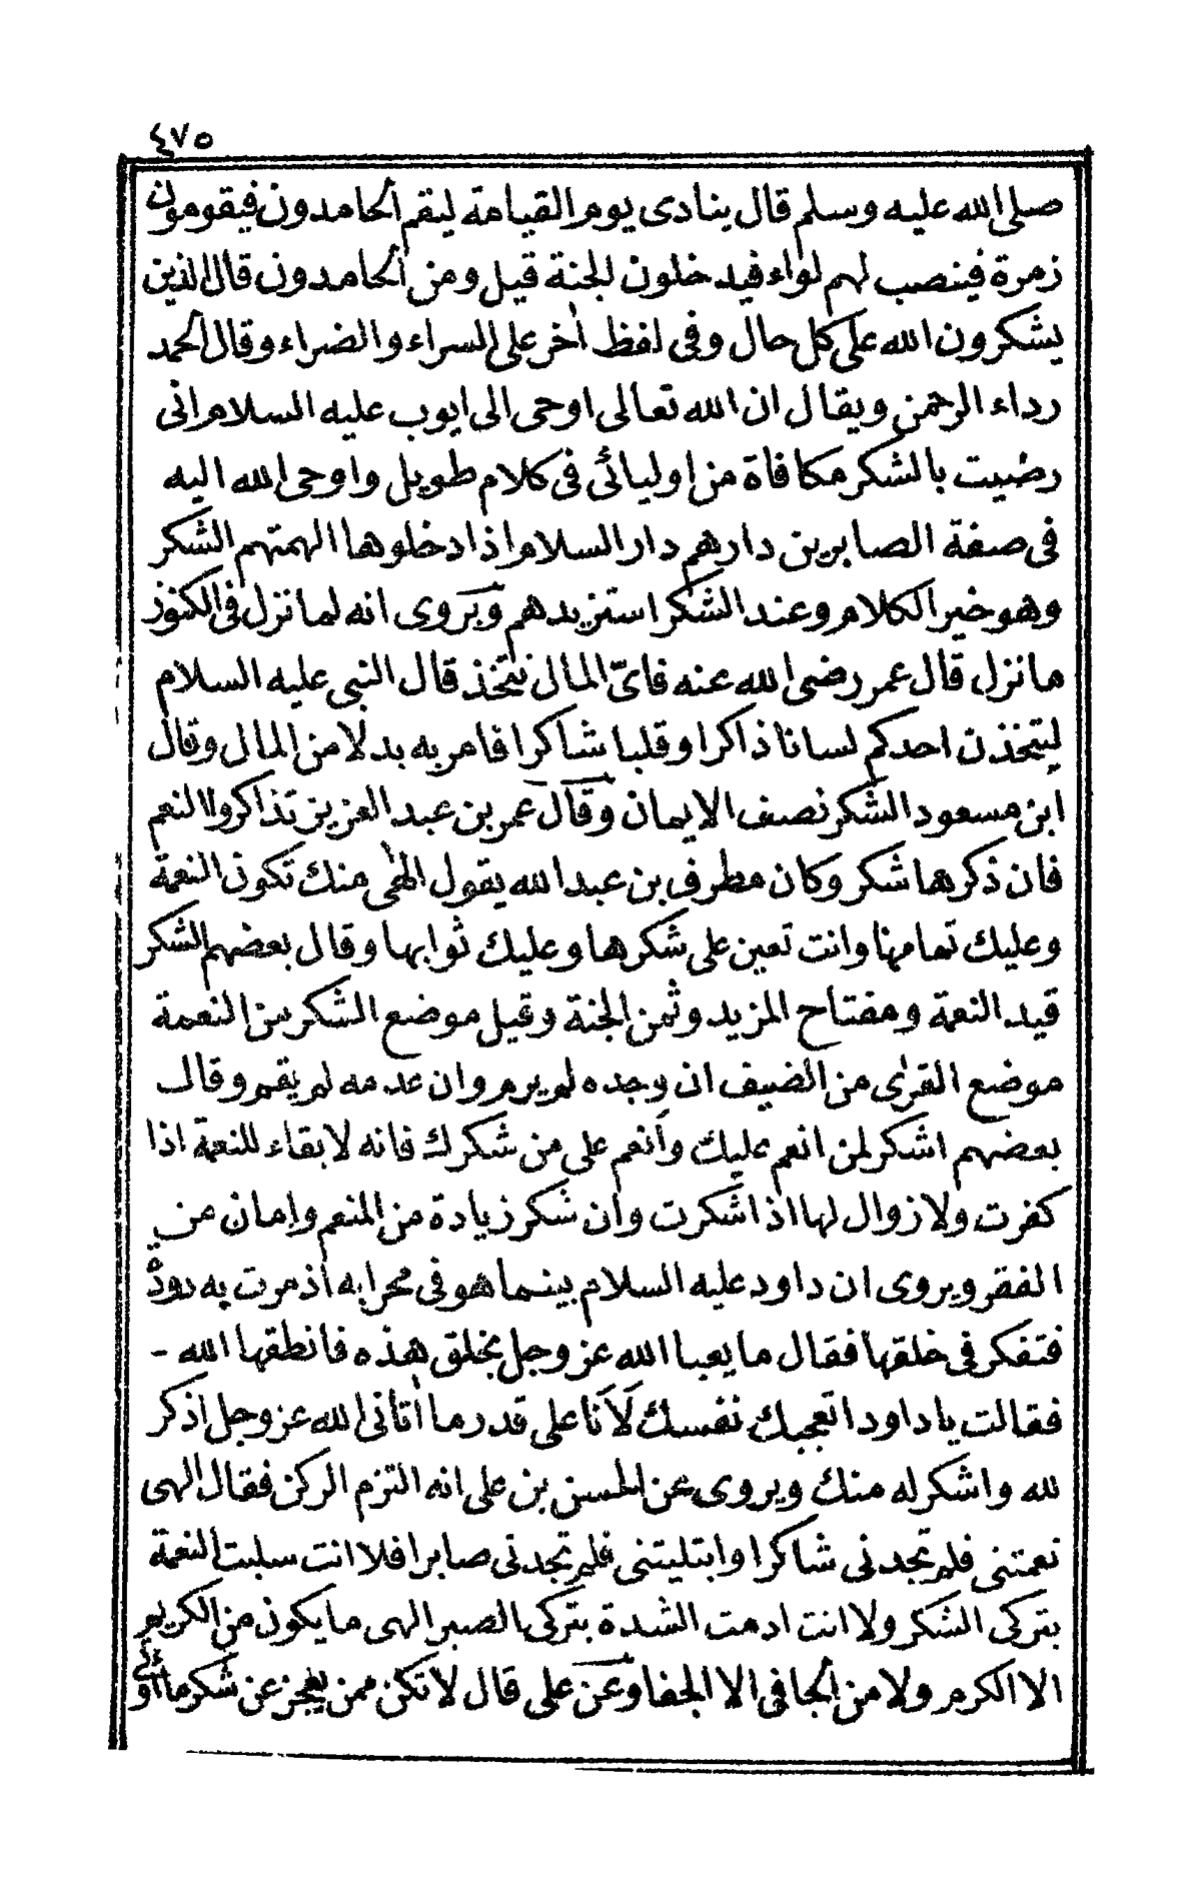 ٤٧٥
صلى الله عليه وسلم قال ينادى يوم القيامة ليقم الحامدون فيقومون
زمرة فينصب لهم لواء فيدخلون الجنة قيل ومن الحامدون قال الذين
يشكرون الله على كل حال وفى لفظ آخر على السراء والضراء وقال الحمد
رداء الرحمن ويقال ان الله تعالى اوحى الى ايوب عليه السلام انى
رضيت بالشكر مكافاة من اوليائى فى كلام طويل واوحى الله اليه
فى صفة الصابرين دارهم دار السلام اذا دخلوها الهمتهم الشكر
وهو خير الكلام وعند الشكر استزيدهم ويروى انه لما نزل فى الكنوز
ما نزل قال عمر رضى الله عنه فاىّ المال نتخذ قال النبى عليه السلام
ليتخذن احدكم لسانا ذاكرا وقلبا شاكرا فامر به بدلا من المال وقال
ابن مسعود الشكر نصف الايمان وقال عمر بن عبد العزيز تذاكروا النعم
فان ذكرها شكر وكان مطرف بن عبد الله يقول الهى منك تكون النعمة
وعليك تمامها وانت تعين على شكرها وعليك ثوابها وقال بعضهم الشكر
قيد النعمة ومفتاح المزيد وثمن الجنة وقيل موضع الشكر من النعمة
موضع القرى من الضيف ان وجده لم يرم وان عدمه لم يقم وقال
بعضهم اشكر لمن انعم عليك وأنعم على من شكرك فانه لا بقاء للنعمة اذا
كفرت ولا زوال لها اذا شكرت وان شكر زيادة من المنعم وامان من
الفقر ويروى ان داود عليه السلام بينما هو فى محرابه اذ مرت به دودة
فتفكر فى خلقها فقال ما يعبا الله عز وجل بخلق هذه فانطقها الله -
فقالت يا داود اتعجبك نفسك لَأَنا على قدر ما آتانى الله عز وجل اذكر
لله واشكر له منك ويروى عن الحسن بن على انه التزم الركن فقال الهى
نعمتنى فلم تجدنى شاكرا وابتليتنى فلم تجدنى صابرا فلا انت سلبت النعمة
بتركى الشكر ولا انت ادمت الشدة بتركى الصبر الهى ما يكون من الكريم
الا الكرم ولا من الجافى الا الجفا وعن على قال لا تكن ممن يعجز عن شكر ما أوتى